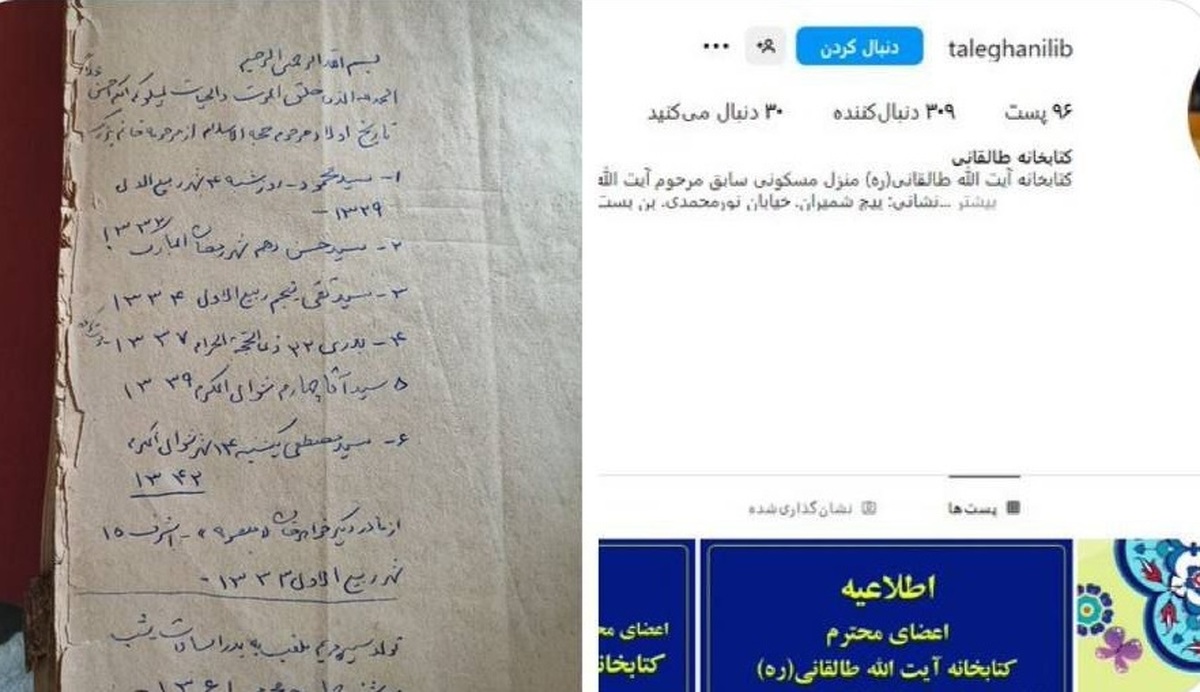 بسم الله الرحمن الرحیم
الحمد لله الذی خلق الموت والحیات لیبلوکم ایکم احسن عملاً
تاریخ اولاد مرحوم حجة الاسلام از مرحومه خانم بزرگ
۱- سید محمود - روز شنبه ۴ شهر ربیع الاول
۱۳۲۹ -
۲- سید حسن دهم شهر رمضان المبارک ۱۳۳۲
۳- سید تقی پنجم ربیع الاول ۱۳۳۴
۴- بدری ۲۲ ذی الحجة الحرام ۱۳۳۷ -
۵ سید آقا چهارم شوال المکرم ۱۳۳۹
۶- سید مصطفی یکشنبه ۱۴ شهر شوال المکرم
۱۳۴۲
از مادر دیگر خواهرمان - اشرف ۱۵
شهر ربیع الاول ۱۳۳۳ -
تولد سیده مریم ملقب به بدر السادات شب
۱۳۶۱
taleghanilib
دنبال کردن
۹۶ پست
۳۰۹ دنبال‌کننده
۳۰ دنبال می‌کنید
کتابخانه طالقانی
کتابخانه آیت الله طالقانی(ره) منزل مسکونی سابق مرحوم آیت الله
...نشانی: پیچ شمیران، خیابان نورمحمدی، بن بست
بیشتر
پست‌ها
نشان‌گذاری‌شده
اطلاعیه
اعضای محترم
کتابخانه آیت الله طالقانی(ره)
اعضای